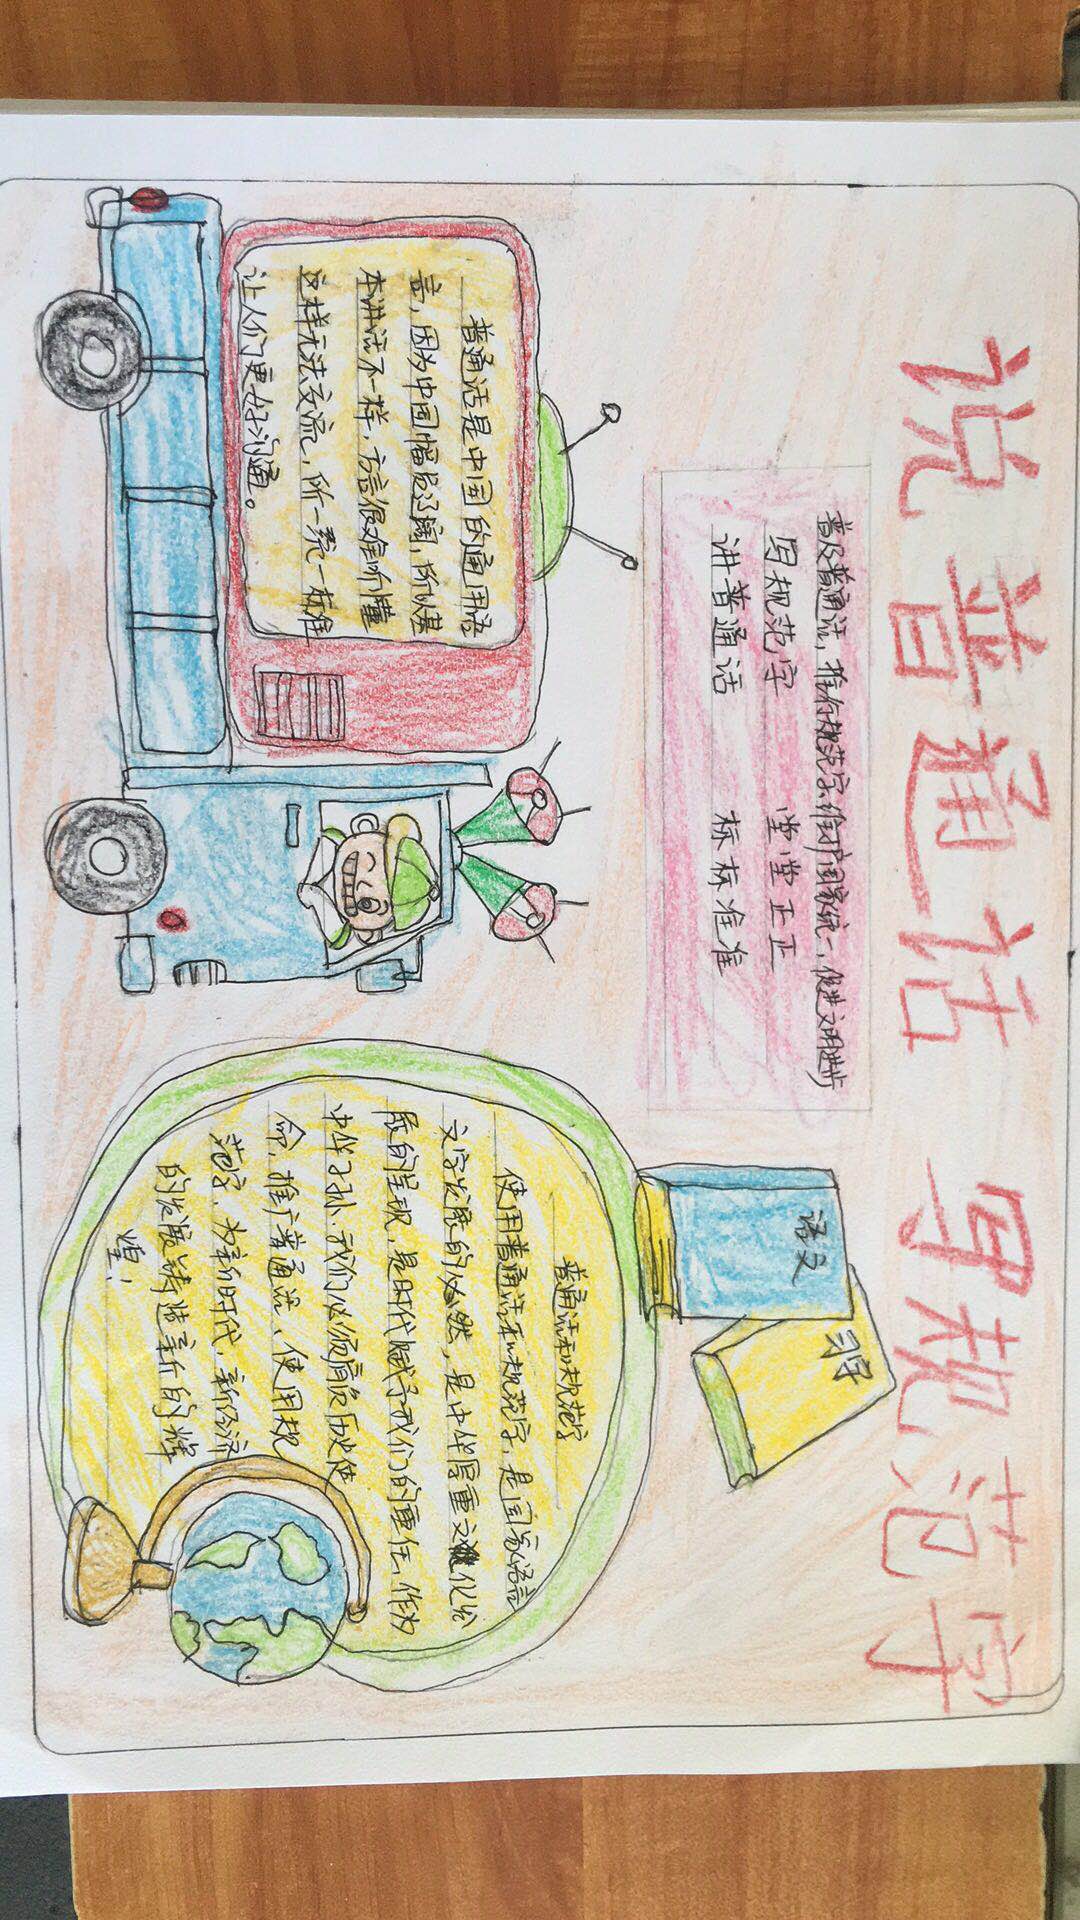 说普通话 写规范字
普及普通话，推行规范字，维护国家统一，促进文明进步
写规范字 堂堂正正
讲普通话 标标准准
普通话是中国的通用语
言，因为中国幅员辽阔，所以基
本讲话不一样，方言很难听懂
这样无法交流，所一系一标准
让人们更好沟通。
语文
习字
普通话和规范字
使用普通话和规范字，是国家语言
文字发展的必然，是中华厚重文化发
展的呈现，是时代赋予我们的重任、作为
中华子孙、我们必须肩负历史使
命，推广普通话、使用规
范字，为新时代，新经济
的发展铸造新的辉
煌！